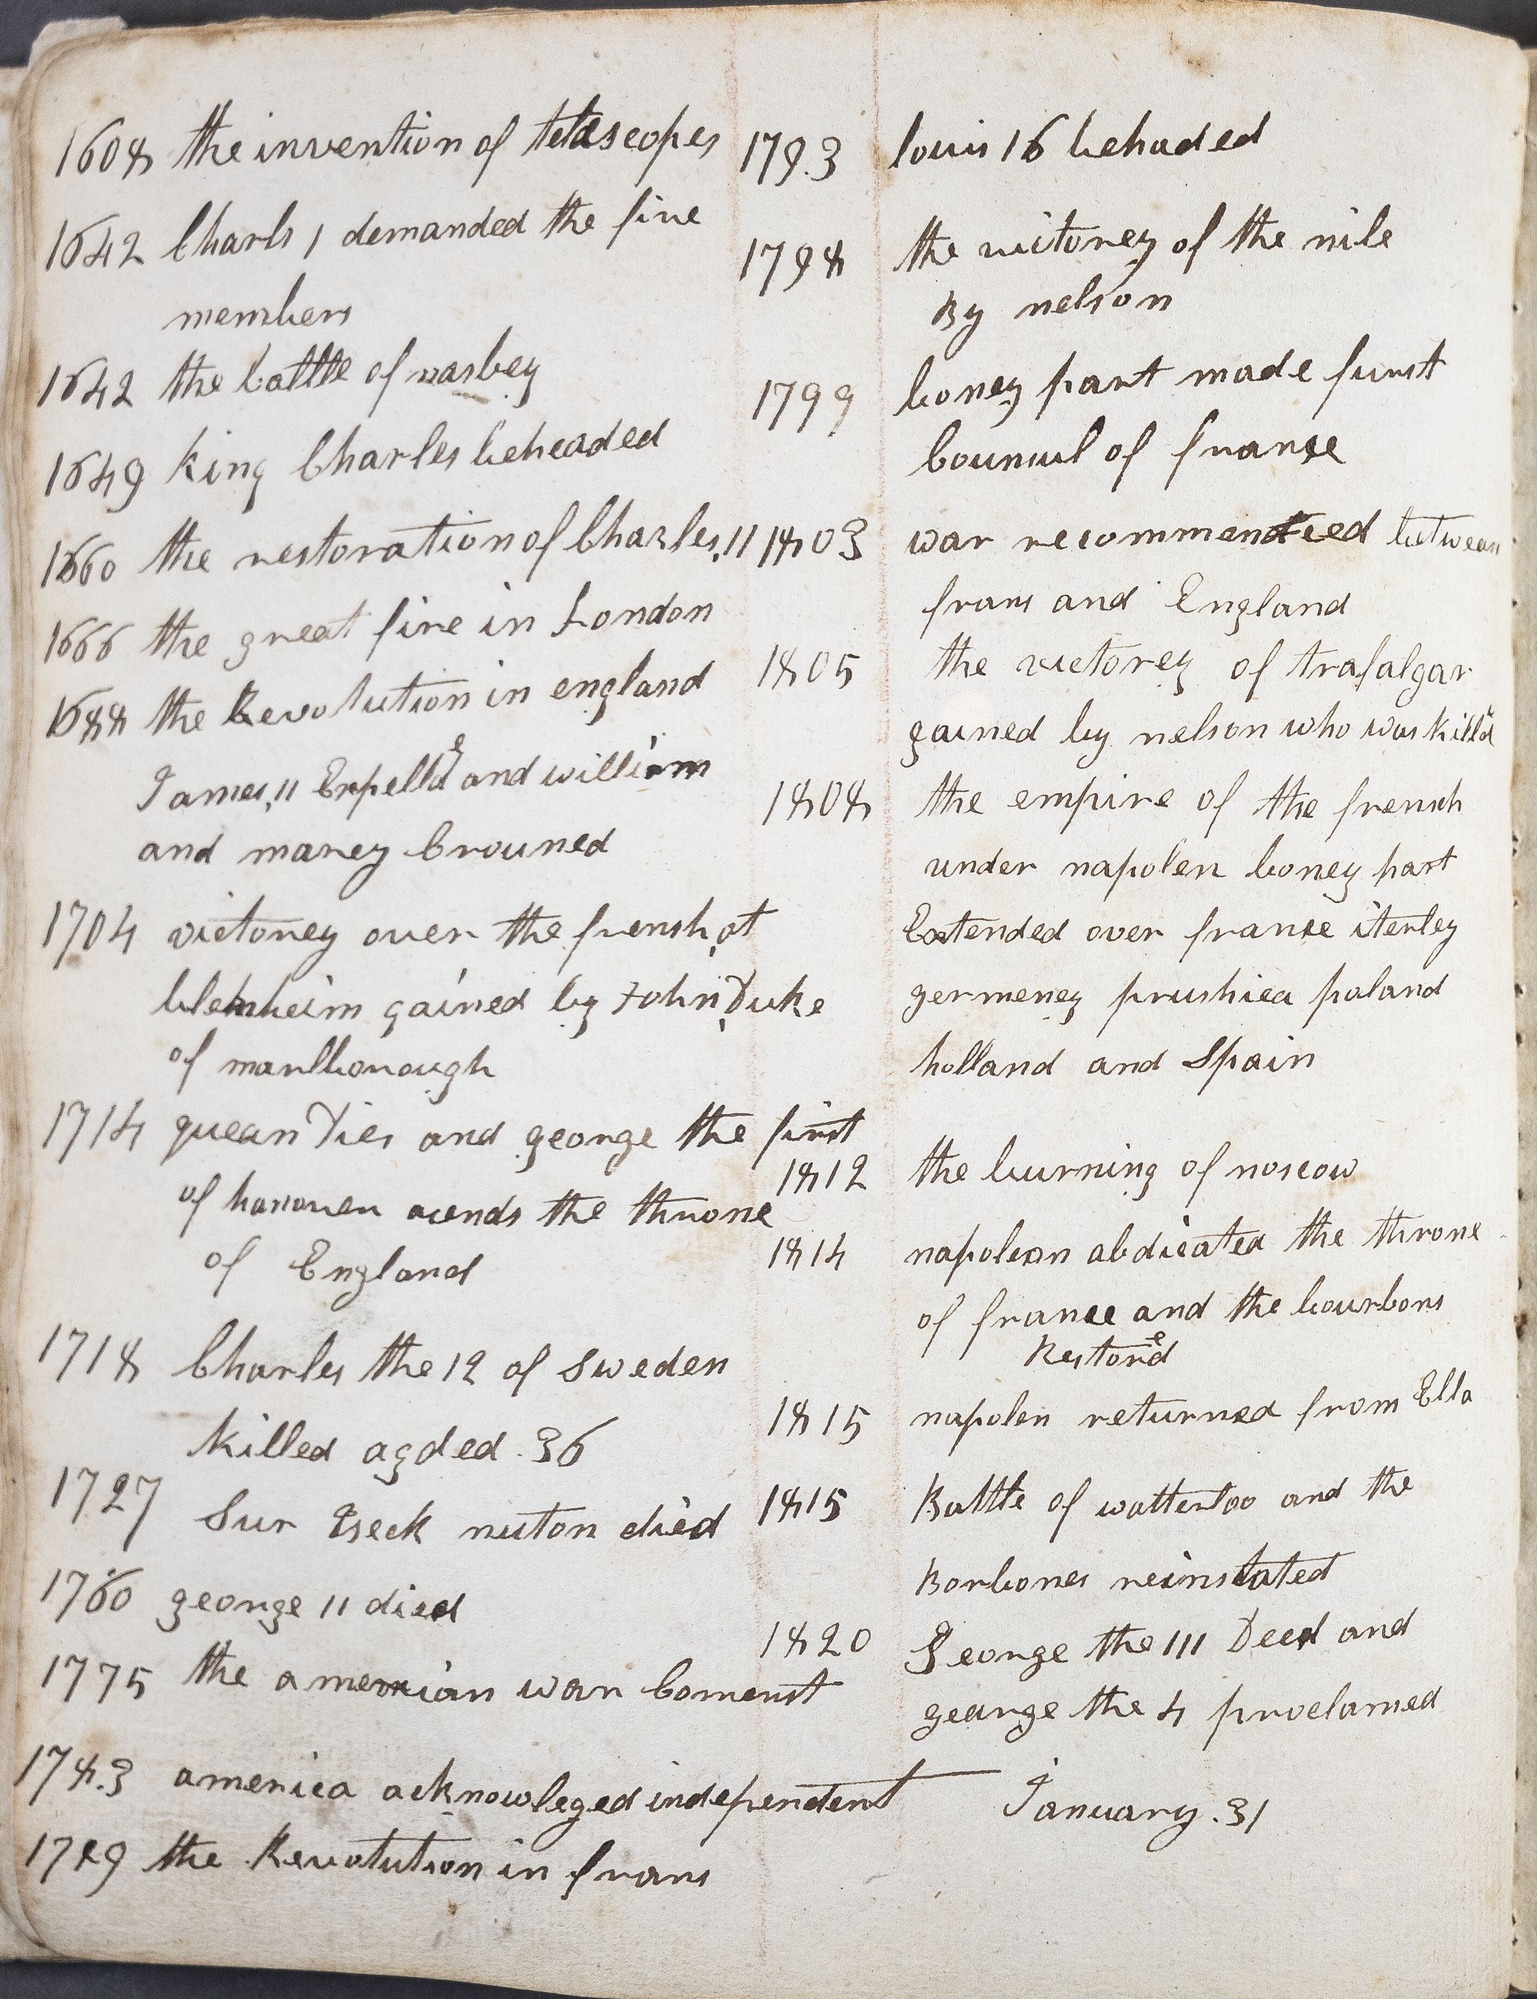 1608 the invention of telescopes
1642 Charls 1 demanded the five
members
1642 the battle of nasbey
1649 King Charles beheaded
1660 the restoration of Charles, 11
1666 the great fire in London
1688 the Revolution in england
James, 11 Expelld and william
and marey Crouned
1704 victorey over the frensh, at
blenheim gained by John, Duke
of marlborough
1714 quean Dies and george the first
of hanover acends the throne
of England
1718 Charles the 12 of Sweden
Killed agded. 36
1727 Sur Iseck nuton died
1760 george 11 died
1775 the amerrian war Comenst
178.3 america acknowleged independent
1789 the Revolution in frans
179.3 louis 16 behaded
1798 the victorey of the nile
By nelson
1799 boney part made furst
Counsul of franse
1803 war recommentced between
frans and England
1805 the victorey of trafalgar
gained by nelson who was killed
1808 the empire of the french
under napolen boney part
Extended over franse iterley
germeney prushiea poland
holland and Spain
1812 the burning of moscow
1814 napolean abdicated the throne
of france and the bourbons
Restored
1815 napolen returned from Elba
1815 Battle of watterloo and the
Borbones reinstated
1820 George the 111 Deed and
gearge the 4 proclamed
January. 31